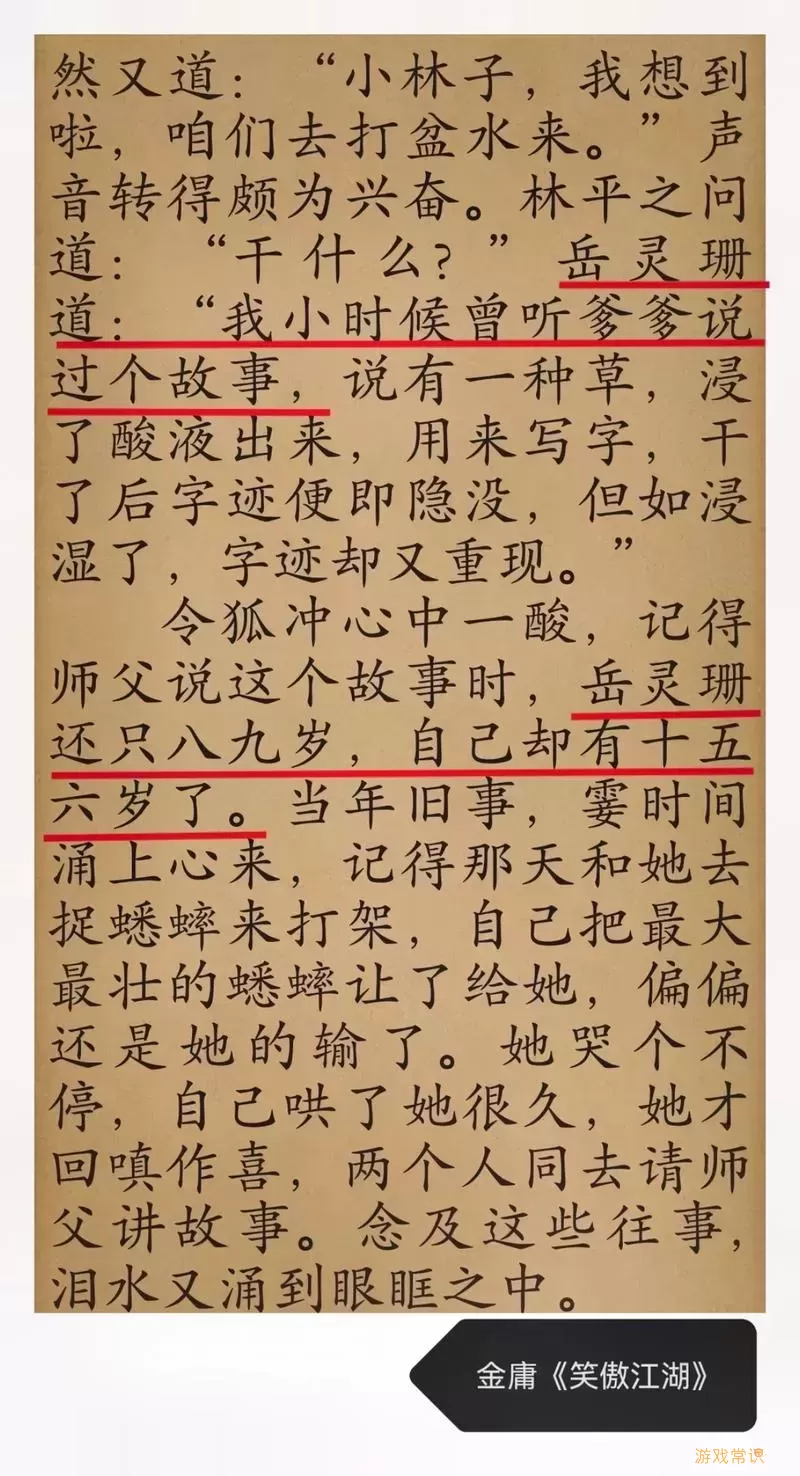 然又道：“小林子，我想到
啦，咱们去打盆水来。”声
音转得颇为兴奋。林平之问
道：“干什么？”岳灵珊
道：“我小时候曾听爹爹说
过个故事，说有一种草，浸
了酸液出来，用来写字，干
了后字迹便即隐没，但如浸
湿了，字迹却又重现。”
令狐冲心中一酸，记得
师父说这个故事时，岳灵珊
还只八九岁，自己却有十五
六岁了。当年旧事，霎时间
涌上心来，记得那天和她去
捉蟋蟀来打架，自己把最大
最壮的蟋蟀让了给她，偏偏
还是她的输了。她哭个不
停，自己哄了她很久，她才
回嗔作喜，两个人同去请师
父讲故事。念及这些往事，
泪水又涌到眼眶之中。
金庸《笑傲江湖》
游戏常识